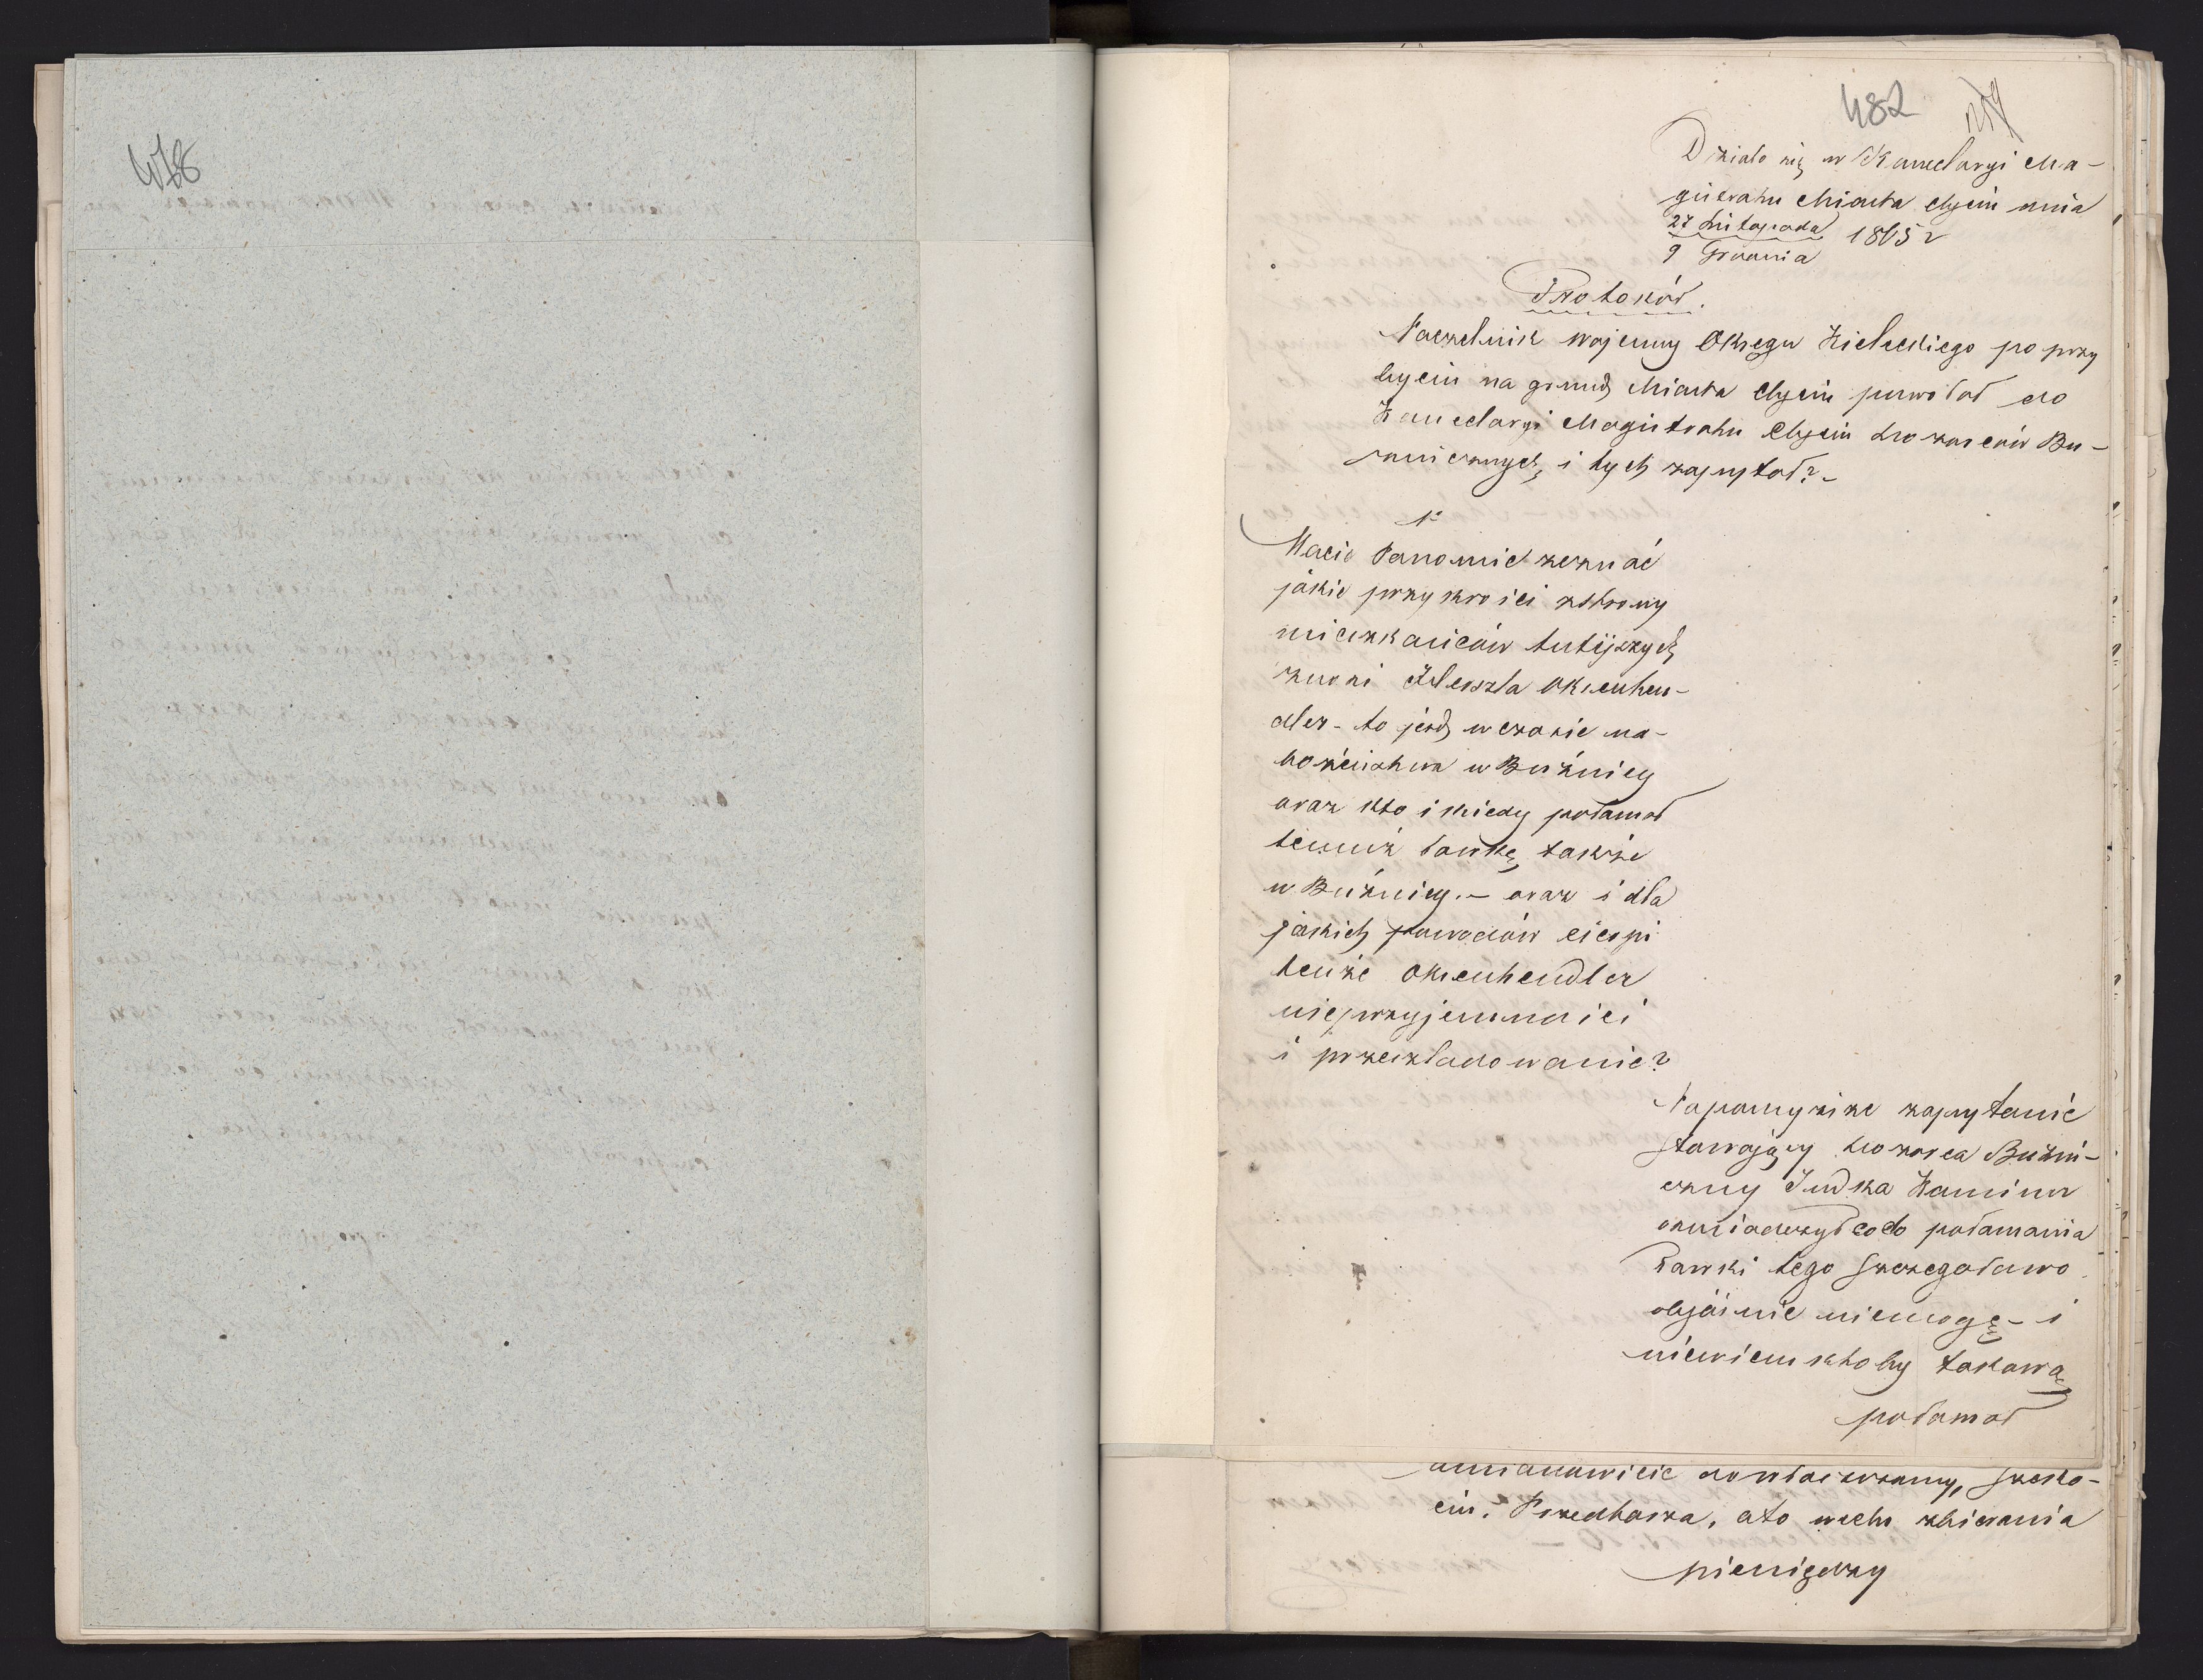 478
482
Działo się w Kancelaryi Ma-
gistratu Miasta Chęcin dnia
27 Listopada
9 Grudnia 1865 r
Protokół.
Naczelnik wojenny Okręgu Kieleckiego po przy
byciu na grunt Miasta Chęcin powołał do
Kancelaryi Magistratu Chęcin dozorców Bu-
żnicznych, i tych zapytał? -
Macie Panowie zeznać
jakie przykrości zstrony
mieszkańców tutejszych
znosi Okienhen-
dler - to jest w czasie na-
bożeństwa w Bużnicy
oraz kto i kiedy połamał
temuż ławkę także
w Bużnicy. - oraz i dla
jakich powodów cierpi
tenże Okienhendler
nieprzyjemności
i prześladowanie?
Na powyższe zapytanie
stawający dozorca Bużni-
czny Judka Kaminer
oświadczył co do połamania
ławki tego szczegołowo
objaśnić niemogę - i
niewiem ktoby takową
połamał
amianowicie do Włoszczowy, Szczeko-
cin, Przedborza, a to wcelu zbierania
pieniędzy